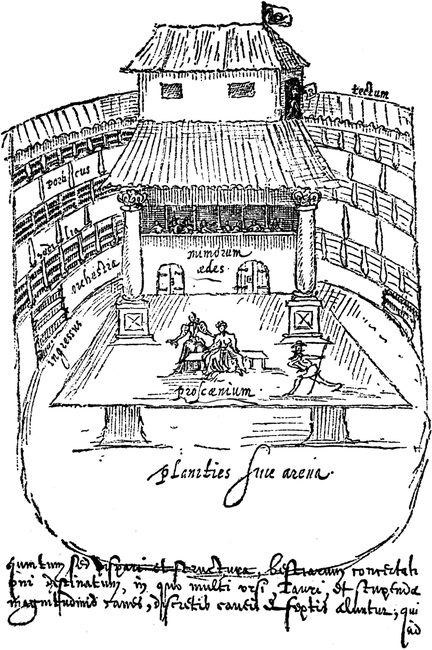 tectum
porticus
sedilia
orchestra
ingressus
mimorum
ædes.
proscænium.
planities sive arena.
quintum sed dispari et structura, bestiarum concertati
oni destinatum, in quo multi ursi, Tauri, et stupendæ
magnitudinis canes, discretis caveis et septis aluntur, qui
ad